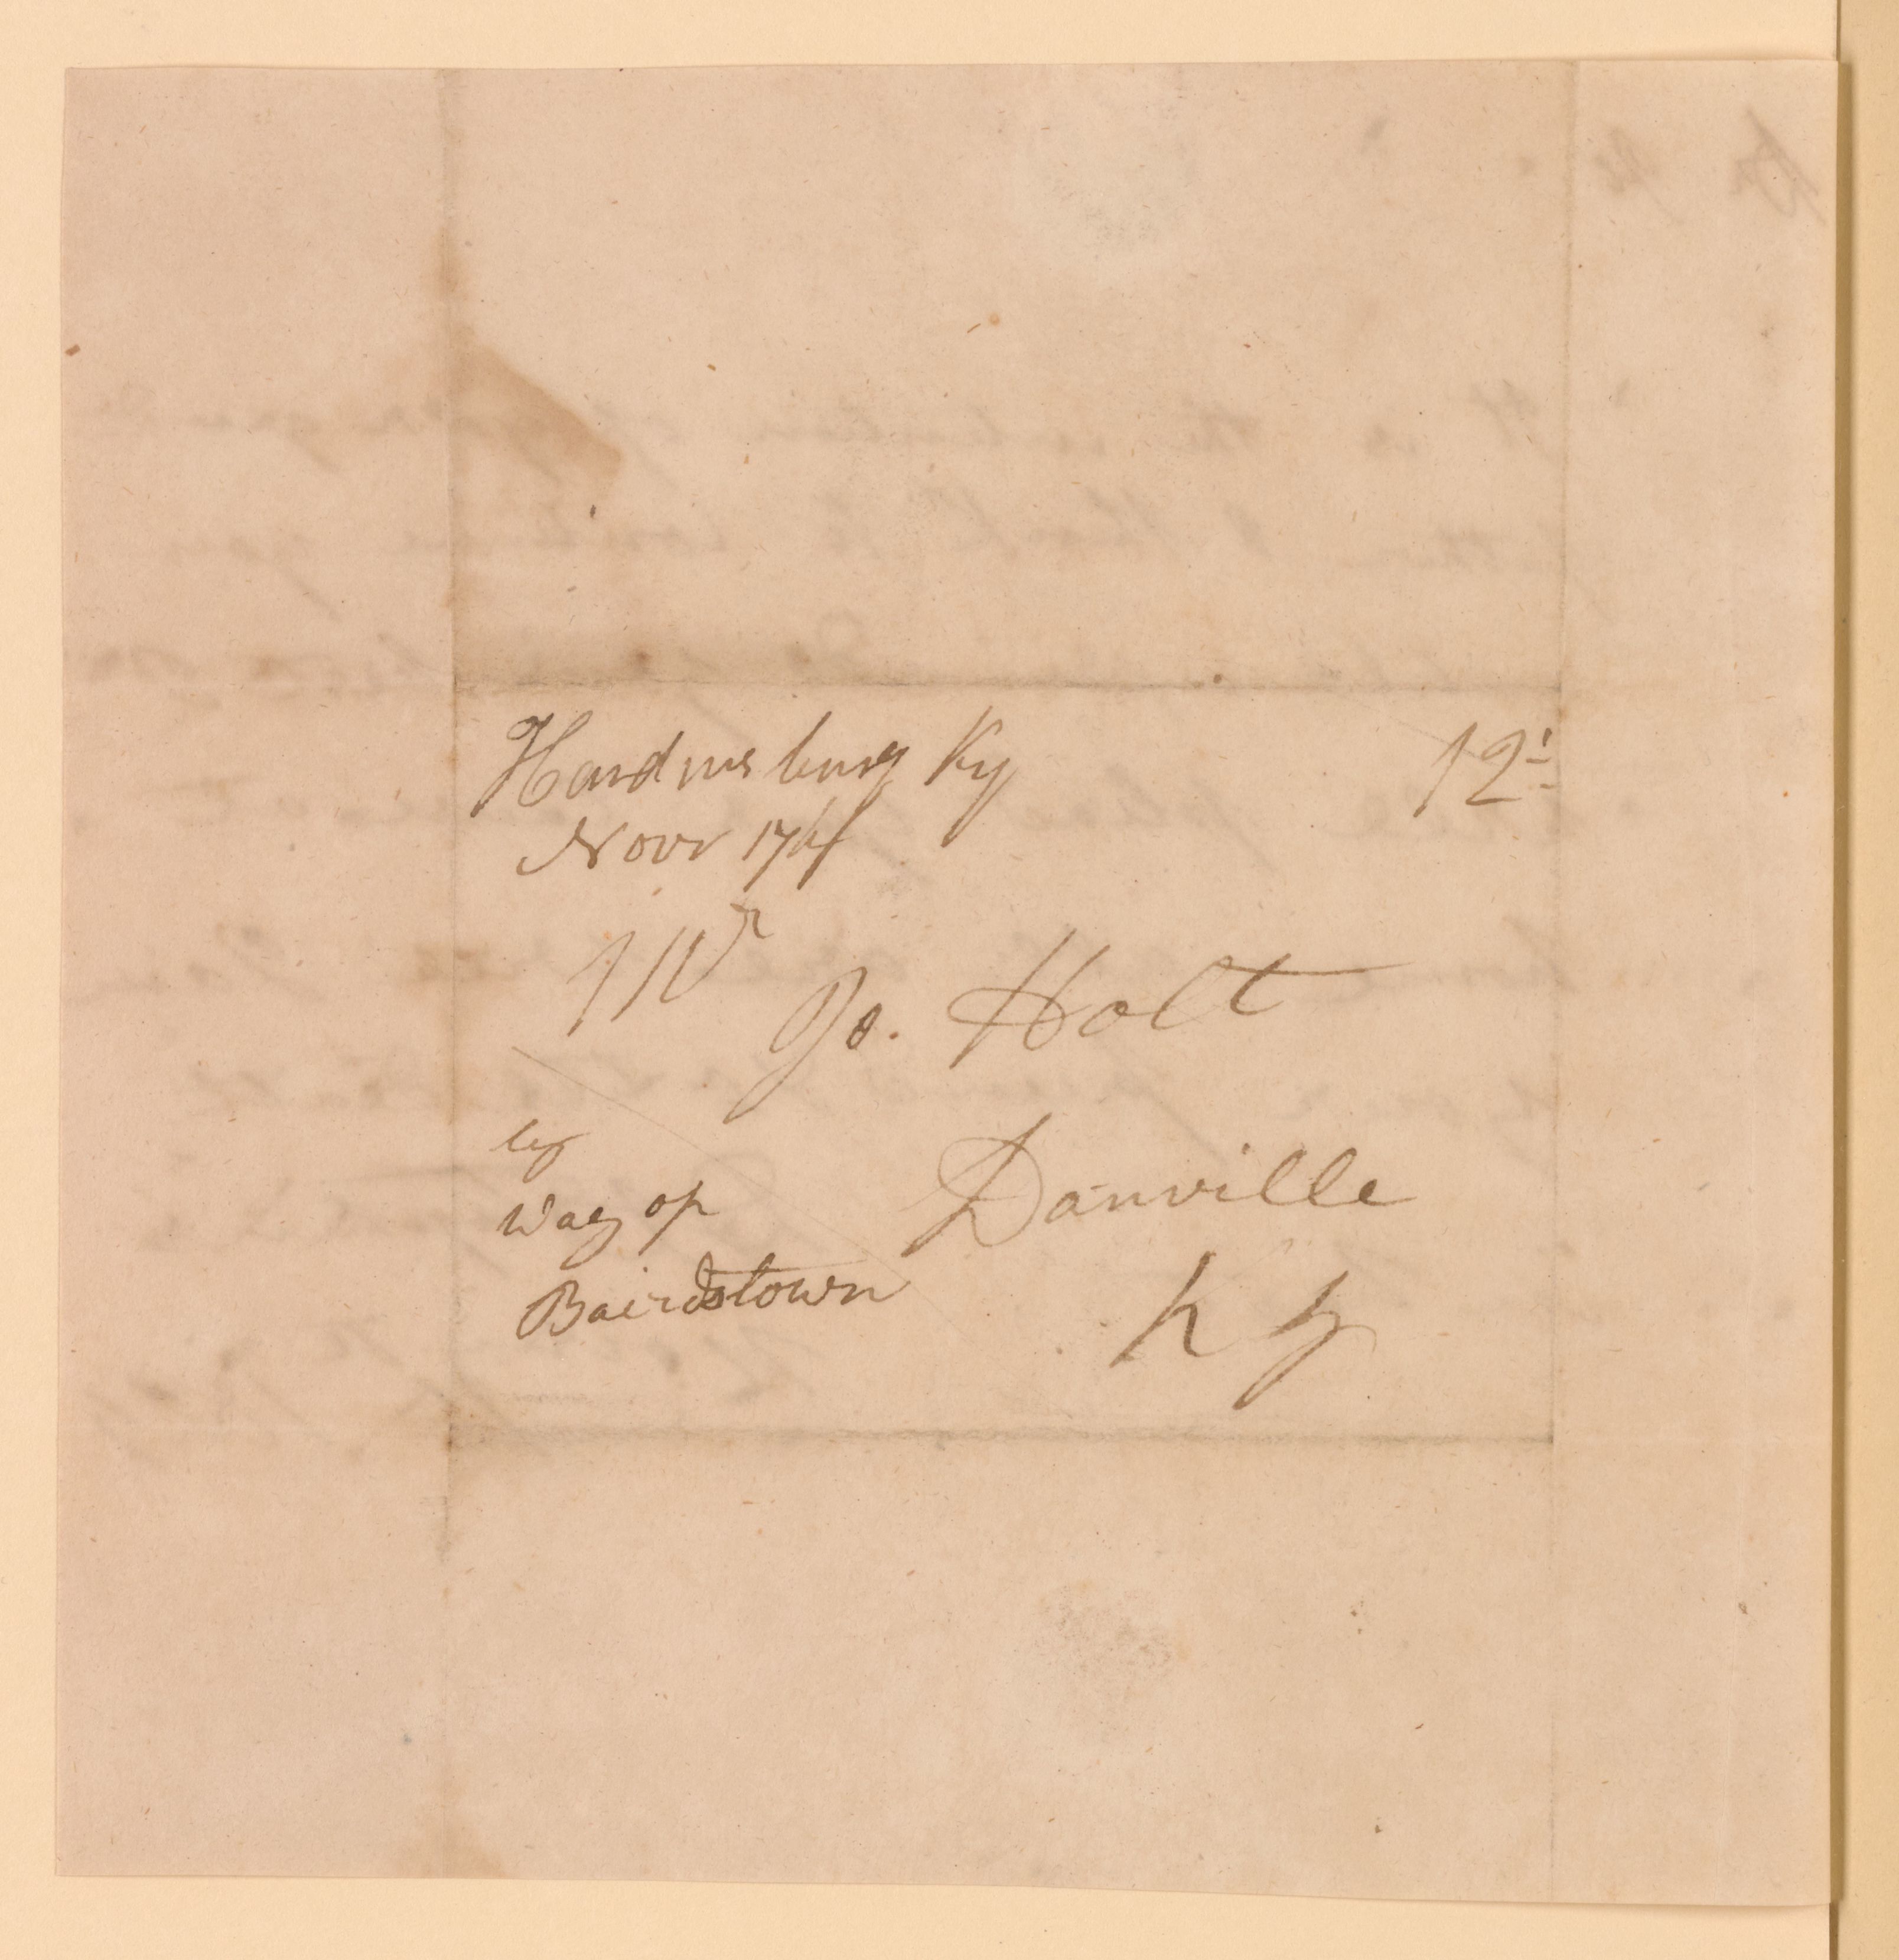 Hardinsburg Ky
12½
Novr 17th
Mr
Jo. Holt
by
Way of
Bairdstown
Danville
Ky